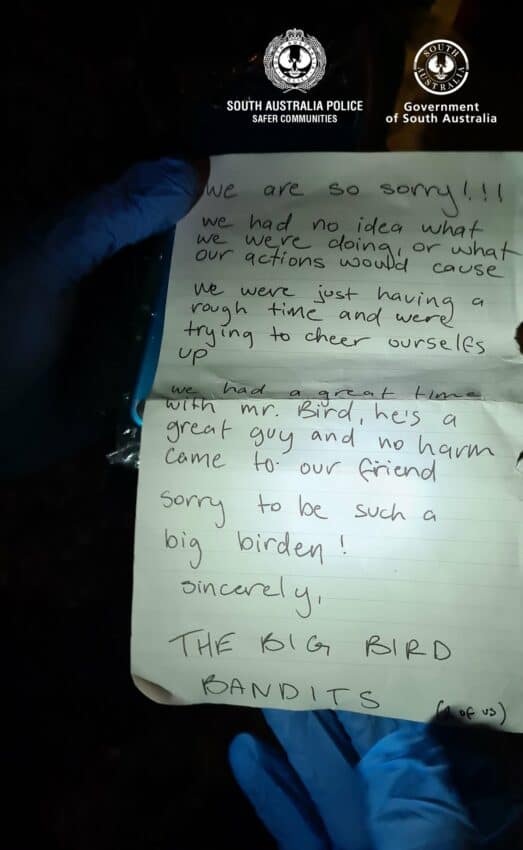 SOUTH AUSTRALIA POLICE
SAFER COMMUNITIES
SOUTH
AUSTRALIA
Government
of South Australia
we are so sorry!!!
we had no idea what
we were doing, or what
our actions would cause
we were just having a
rough time and were
trying to cheer ourselfs
up
we had a great time
with mr. Bird, he's a
great guy and no harm
came to our friend
sorry to be such a
big birden!
sincerely,
THE BIG BIRD
BANDITS
of us)